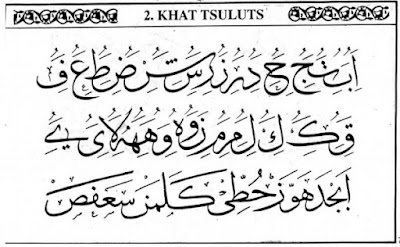 2. KHAT TSULUTS
ا ب ت ج ح د ر ز س ش ن ض ط ع ف
ق ك ك ل م م ن و ه و ه ه لا ى ي
ابجد هوز حطي كلمن سعفص